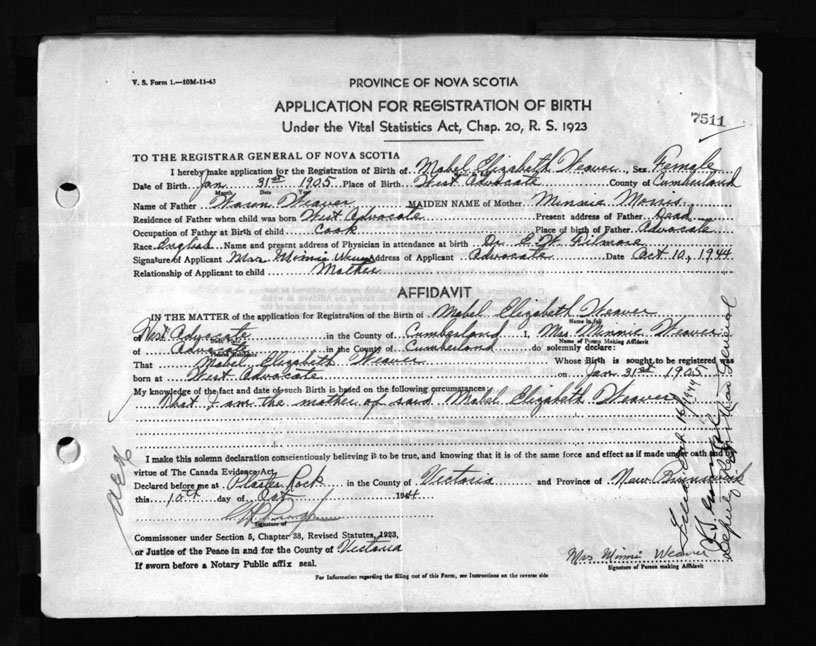 V. S. Form 1.—10M-11-43
PROVINCE OF NOVA SCOTIA
APPLICATION FOR REGISTRATION OF BIRTH
7511
Under the Vital Statistics Act, Chap. 20, R. S. 1923
TO THE REGISTRAR GENERAL OF NOVA SCOTIA
I hereby make application for the Registration of Birth of Mabel Elizabeth Weaver Sex Female
Date of Birth Jan 31st 1905 Place of Birth West Advocate County of Cumberland
Month Date
Name of Father Weaver MAIDEN NAME of Mother Minnie Morris
Residence of Father when child was born West Advocate Present address of Father Dead
Occupation of Father at Birth of child Cook Place of birth of Father Advocate
Race English Name and present address of Physician in attendance at birth Dr. Gilmore
Signature of Applicant Mrs Minnie Weaver Address of Applicant Advocate Date Oct 10, 1944
Relationship of Applicant to child Mother
AFFIDAVIT
IN THE MATTER of the application for Registration of the Birth of Mabel Elizabeth Weaver
Name in full
of West Advocate in the County of Cumberland I, Mrs. Minnie Weaver
Name of Person Making Affidavit
of Advocate in the County of Cumberland do solemnly declare:
That Mabel Elizabeth Weaver Whose Birth is sought to be registered was
born at West Advocate on Jan 31st 1905
My knowledge of the fact and date of such Birth is based on the following circumstances:
That I am the mother of said Mabel Elizabeth Weaver
I make this solemn declaration conscientiously believing it to be true, and knowing that it is of the same force and effect as if made under oath and by
virtue of The Canada Evidence Act.
Declared before me at Plaster Rock in the County of Victoria and Province of New Brunswick
this 10th day of Oct 1944
Signature of
Commissioner under Section 5, Chapter 38, Revised Statutes, 1923,
or Justice of the Peace in and for the County of Victoria
If sworn before a Notary Public affix seal.
Mrs Minnie Weaver
Signature of Person making Affidavit
For Information regarding the filling out of this Form, see Instructions on the reverse side
Deputy Registrar General